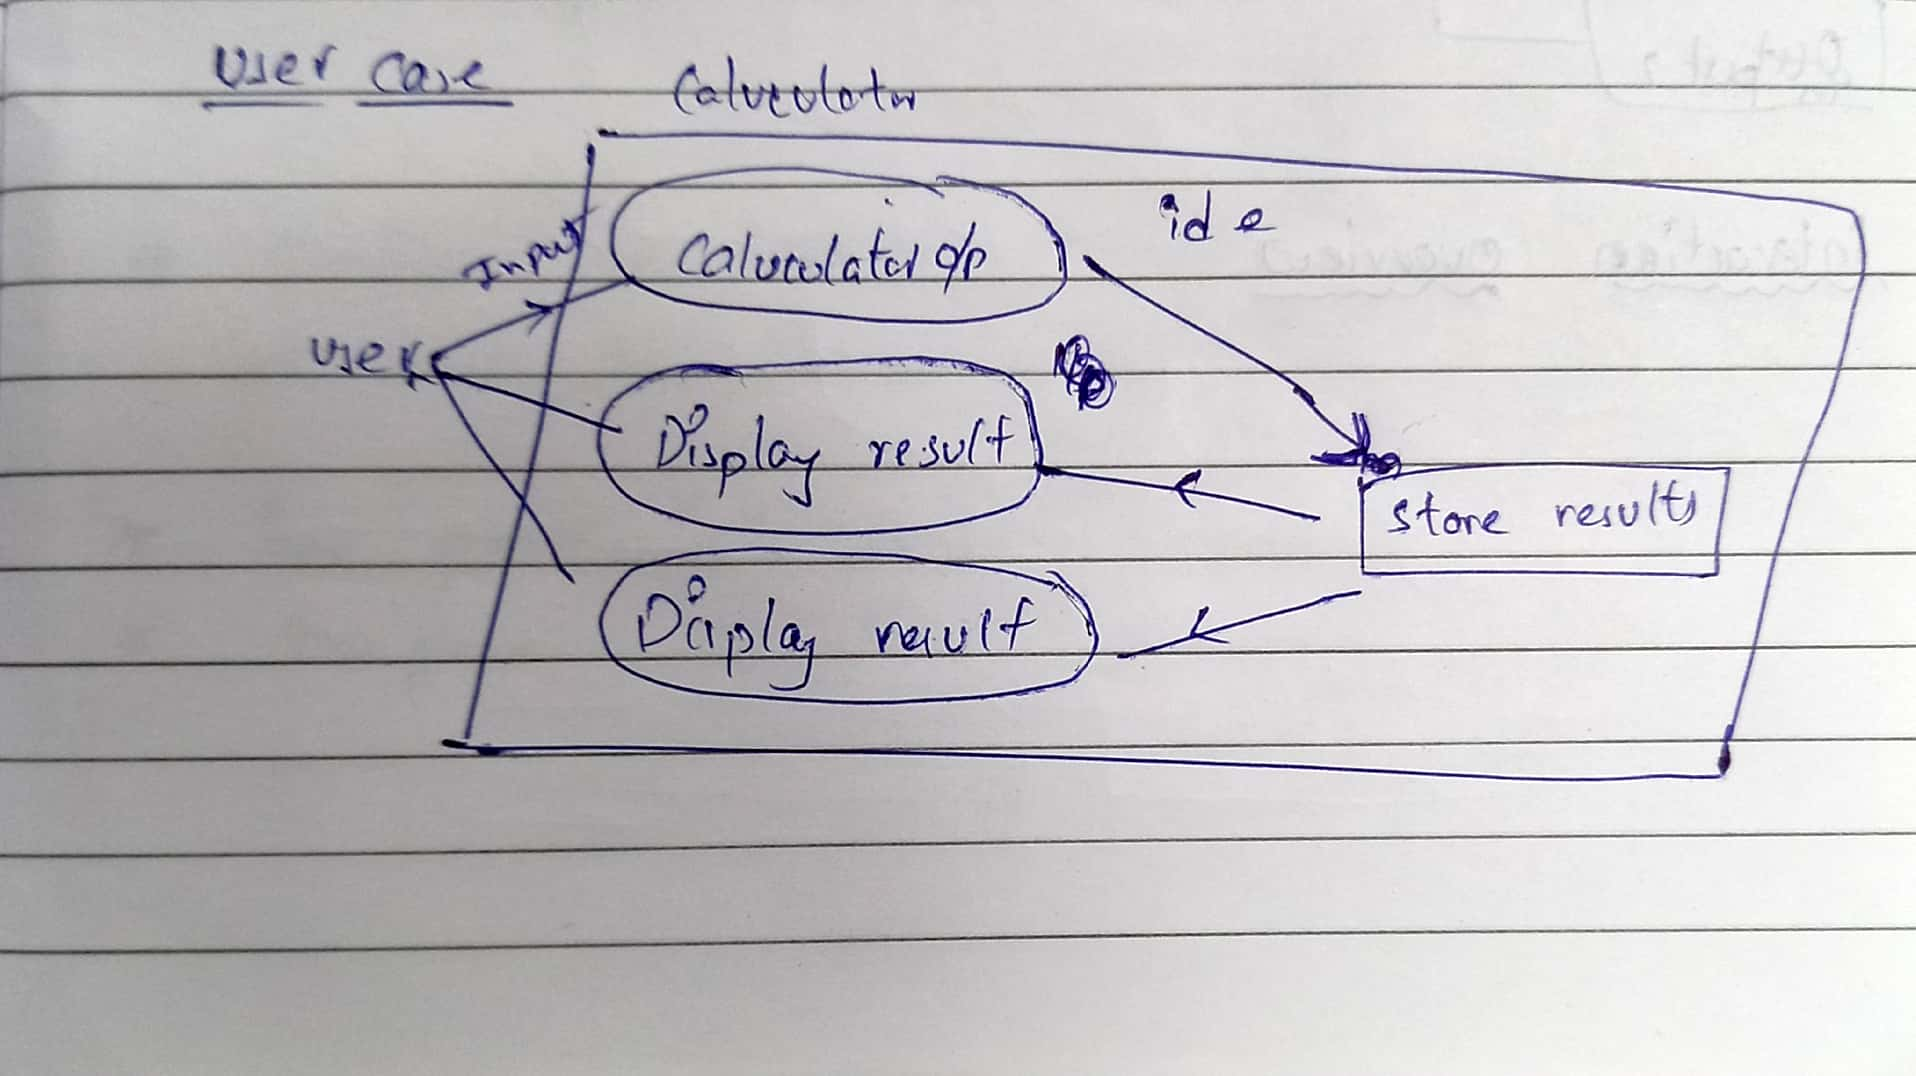 User Case
Caluculator
id e
Input
Caluculator o/p
User
Display result
store results
Display result